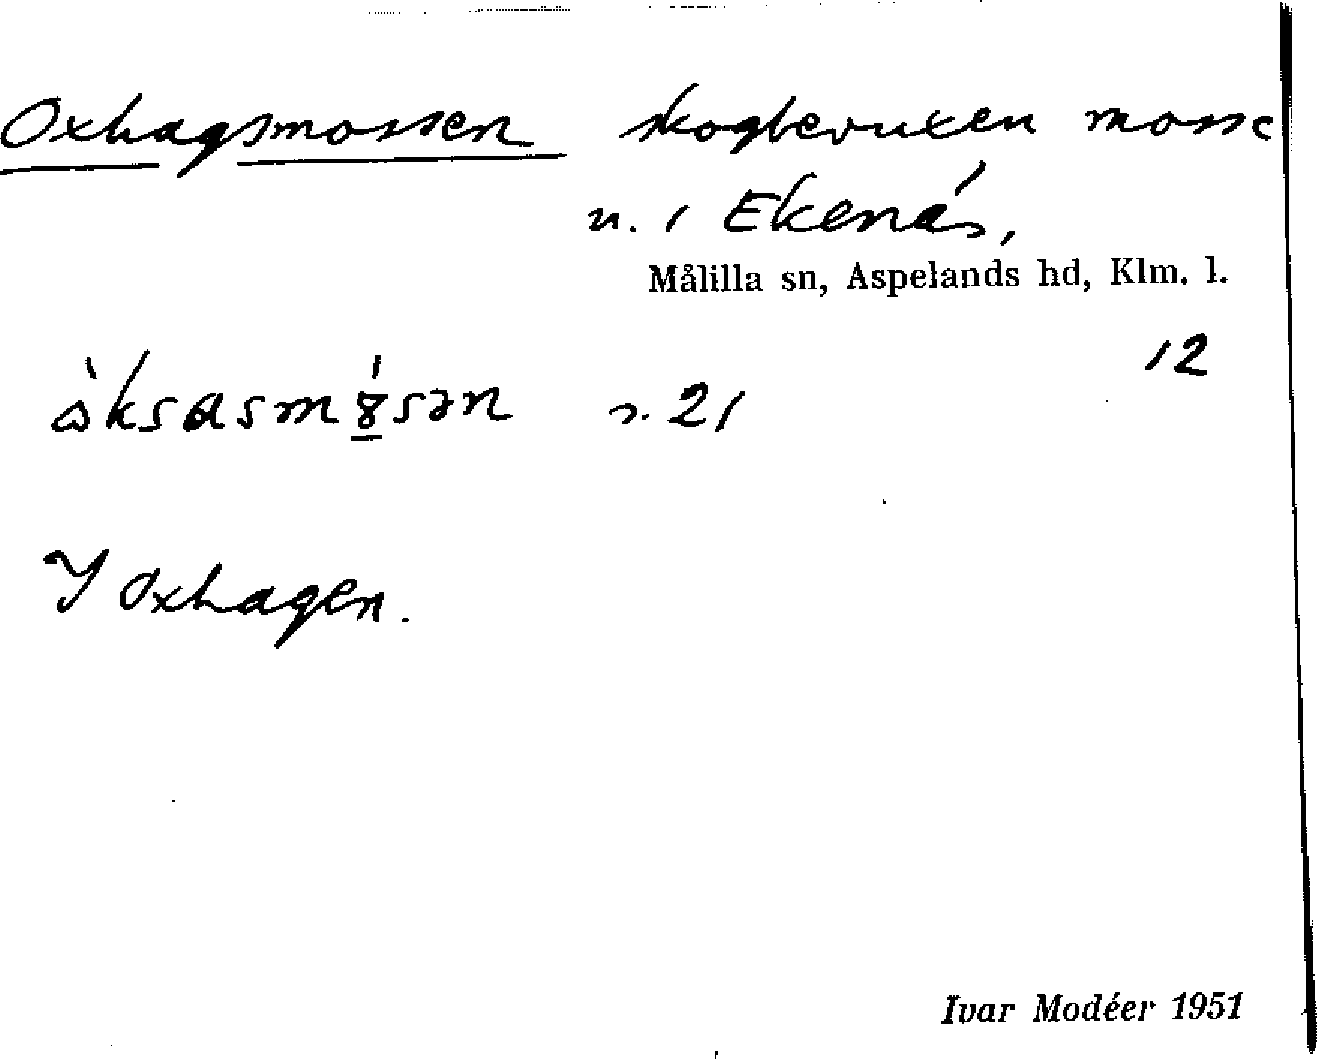 Oxhagsmossen skogbevuxen mosse
n. i Ekenäs,
Målilla sn, Aspelands hd, Klm. l.
12
s. 21
I Oxhagen.
Ivar Modéer 1951